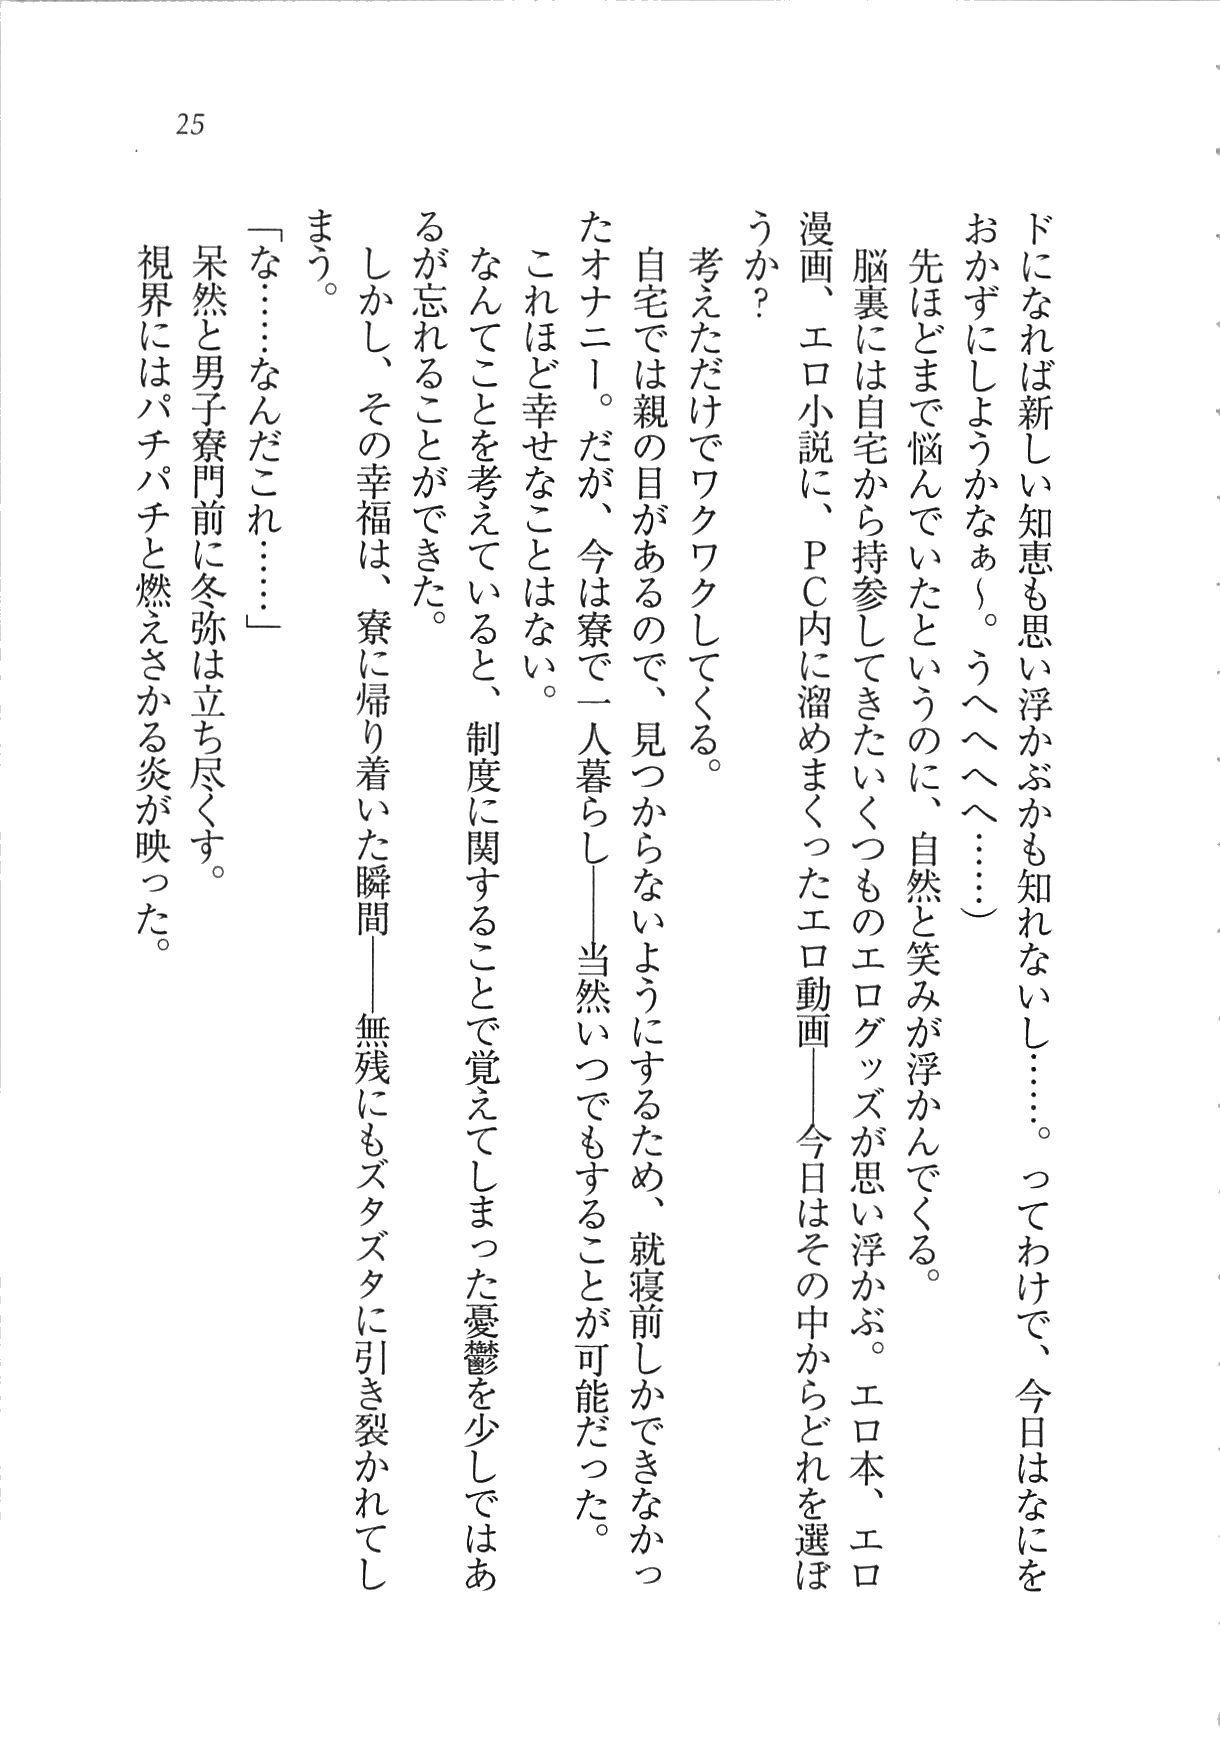 25
ドになれば新しい知恵も思い浮かぶかも知れないし……。ってわけで、今日はなにを
おかずにしようかなぁ～。うへへへへ……）
先ほどまで悩んでいたというのに、自然と笑みが浮かんでくる。
脳裏には自宅から持参してきたいくつものエログッズが思い浮かぶ。エロ本、エロ
漫画、エロ小説に、ＰＣ内に溜めまくったエロ動画――今日はその中からどれを選ぼ
うか？
考えただけでワクワクしてくる。
自宅では親の目があるので、見つからないようにするため、就寝前しかできなかっ
たオナニー。だが、今は寮で一人暮らし――当然いつでもすることが可能だった。
これほど幸せなことはない。
なんてことを考えていると、制度に関することで覚えてしまった憂鬱を少しではあ
るが忘れることができた。
しかし、その幸福は、寮に帰り着いた瞬間――無残にもズタズタに引き裂かれてし
まう。
「な……なんだこれ……」
呆然と男子寮門前に冬弥は立ち尽くす。
視界にはパチパチと燃えさかる炎が映った。